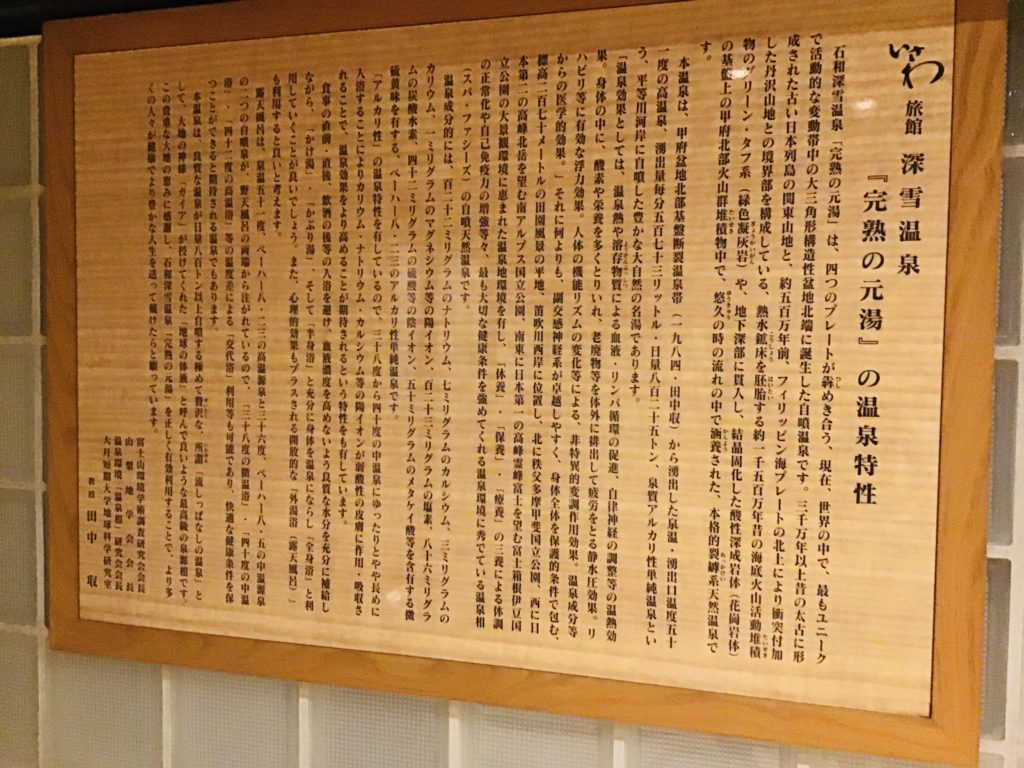 いさわ
旅館 深雪温泉
『完熟の元湯』の温泉特性
石和深雪温泉「完熟の元湯」は、四つのプレートが犇めき合う、現在、世界の中で、最もユニーク
で活動的な変動帯中の大三角形構造性盆地北端に誕生した自噴温泉です。三千万年以上昔の太古に形
成された古い日本列島の関東山地と、約五百万年前、フィリッピン海プレートの北上により衝突付加
した丹沢山地との境界部を構成している、熱水鉱床を胚胎する約一千五百万年昔の海底火山活動堆積
物のグリーン・タフ系（緑色凝灰岩）や、地下深部に貫入し、結晶固化した酸性深成岩体（花崗岩体）
の基盤上の甲府北部火山群堆積物中で、悠久の時の流れの中で涵養された、本格的裂罅系天然温泉で
す。
本温泉は、甲府盆地北部基盤断裂温泉帯（一九八四・田中収）から湧出した泉温・湧出口温度五十
一度の高温泉、湧出量毎分五百七十三リットル・日量八百二十五トン、泉質アルカリ性単純温泉とい
う、平等川河岸に自噴した豊かな大自然の名湯であります。
「温泉効果としては、温泉熱や溶存物質による血液・リンパ循環の促進、自律神経の調整等の温熱効
果。身体の中に、酸素や栄養を多くとりいれ、老廃物等を体外に排出して疲労をとる静水圧効果。リ
ハビリ等に有効な浮力効果。人体の機能リズムの変化等による、非特異的変調作用効果。温泉成分等
からの医学的効果。」それに何よりも、副交感神経系が卓越しやすく、身体全体を保護的条件で包む、
標高二百七十メートルの田園風景の平地、笛吹川西岸に位置し、北に秩父多摩甲斐国立公園、西に日
本第二の高峰北岳を望む南アルプス国立公園、南東に日本第一の高峰霊峰富士を望む富士箱根伊豆国
立公園の大景観環境に恵まれた温泉地環境を有し、「休養」・「保養」・「療養」の三養による体調
の正常化や自己免疫力の増強等々、最も大切な健康条件を強めてくれる温泉環境に秀でている温泉相
（スパ・ファシーズ）の自噴天然温泉です。
温泉成分的には、百二十二ミリグラムのナトリウム、七ミリグラムのカルシウム、三ミリグラムの
カリウム、一ミリグラムのマグネシウム等の陽イオン、百二十三ミリグラムの塩素、八十六ミリグラ
ムの炭酸水素、四十二ミリグラムの硫酸等の陰イオン、五十ミリグラムのメタケイ酸等を含有する微
硫黄味を有する、ペーハー八・二三のアルカリ性単純温泉です。
「アルカリ性」の温泉特性を有しているので、三十八度から四十度の中温泉にゆったりとやや長めに
入浴することによりカリウム・ナトリウム・カルシウム等の陽イオンが弱酸性の皮膚に作用・吸収さ
れることで、温泉効果をより高めることが期待されるという特性をも有しています。
食事の直前・直後、飲酒の後等の入浴を避け、血液濃度を高めないよう良質な水分を充分に補給し
ながら、「かけ湯」・「かぶり湯」、そして「半身浴」と充分に身体を温泉にならし「全身浴」と利
用していくことが良いでしょう。また、心理的効果もプラスされる開放的な「外湯浴（露天風呂）」
も利用すると良いと考えます。
露天風呂は、泉温五十一度、ペーハー八・二三の高温源泉と三十六度、ペーハー八・五の中温源泉
の二つの自噴泉が、野天風呂の両端から注がれているので、「三十八度の微温浴」・「四十度の中温
浴」・「四十二度の高温浴」等の温度差による「交代浴」利用等も可能であり、快適な健康条件を保
つことができると期待される温泉でもあります。
本温泉は、良質な温泉が日量八百トン以上自噴する極めて贅沢な、所謂「流しっぱなしの温泉」と
して、大地の神様「ガイア」が授けてくれた「地球の体液」と呼んで良いような最高峻の泉源相です。
この貴重な大地の恵みに感謝し、石和深雪温泉「完熟の元湯」を正しく有効利用することで、より多
くの人々が健康でより豊かな人生を送って戴けたらと願っています。
富士山環境学術調査研究会会長
山梨地学会会長
温泉環境「温泉相」研究会会長
大月短期大学地球科学研究室
教授 田中 収